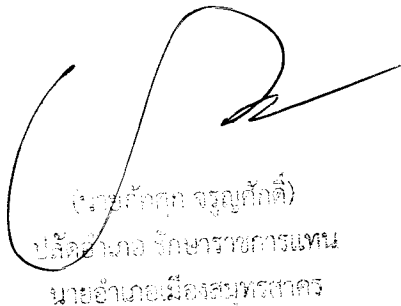 จรูญศักดิ์)
ปลัดอำเภอ รักษาราชการแทน
นายอำเภอเมืองสมุทรสาคร